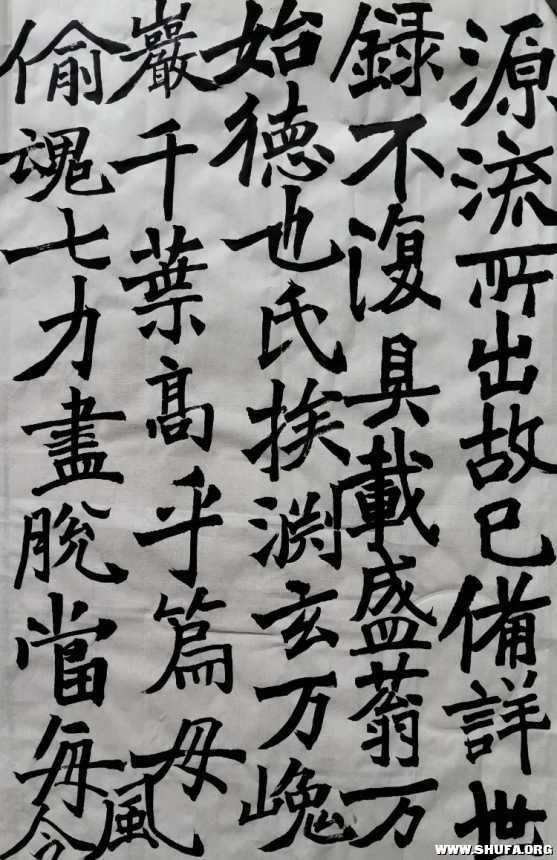 源流所出故已備詳世
録不復具載盛蓊万
始德也氏挨渊玄万嵬
巖千葉高乎篇毋風
偷魂七力盡脫當每令
WWW.SHUFA.ORG